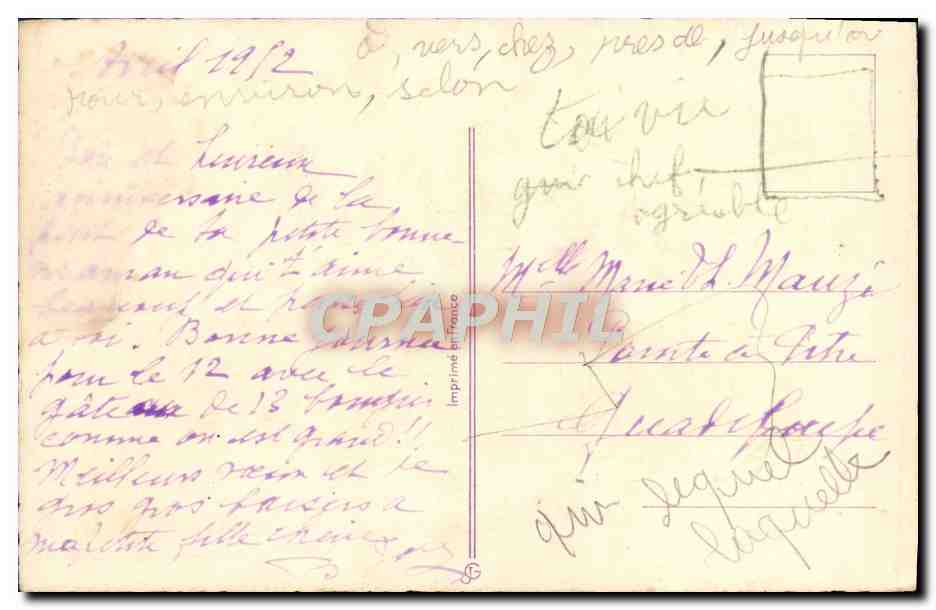 Avril 1952
à, vers, chez, près de, jusqu'à ou
pour, environ, selon
heureux
anniversaire de la
de ta petite bonne
maman qui t'aime
beaucoup et
à toi. Bonne journée
pour le 12 avec le
gâteau de 13 bougies
comme on est grand!!
Meilleurs vœux et de
gros gros baisers à
ma petite fille chérie
toi vie
chef,
agréable
Melle Marie Th Mauzé
Pointe à Pitre
Guadeloupe
qui lequel
laquelle
Imprimé en France
CPAPHIL